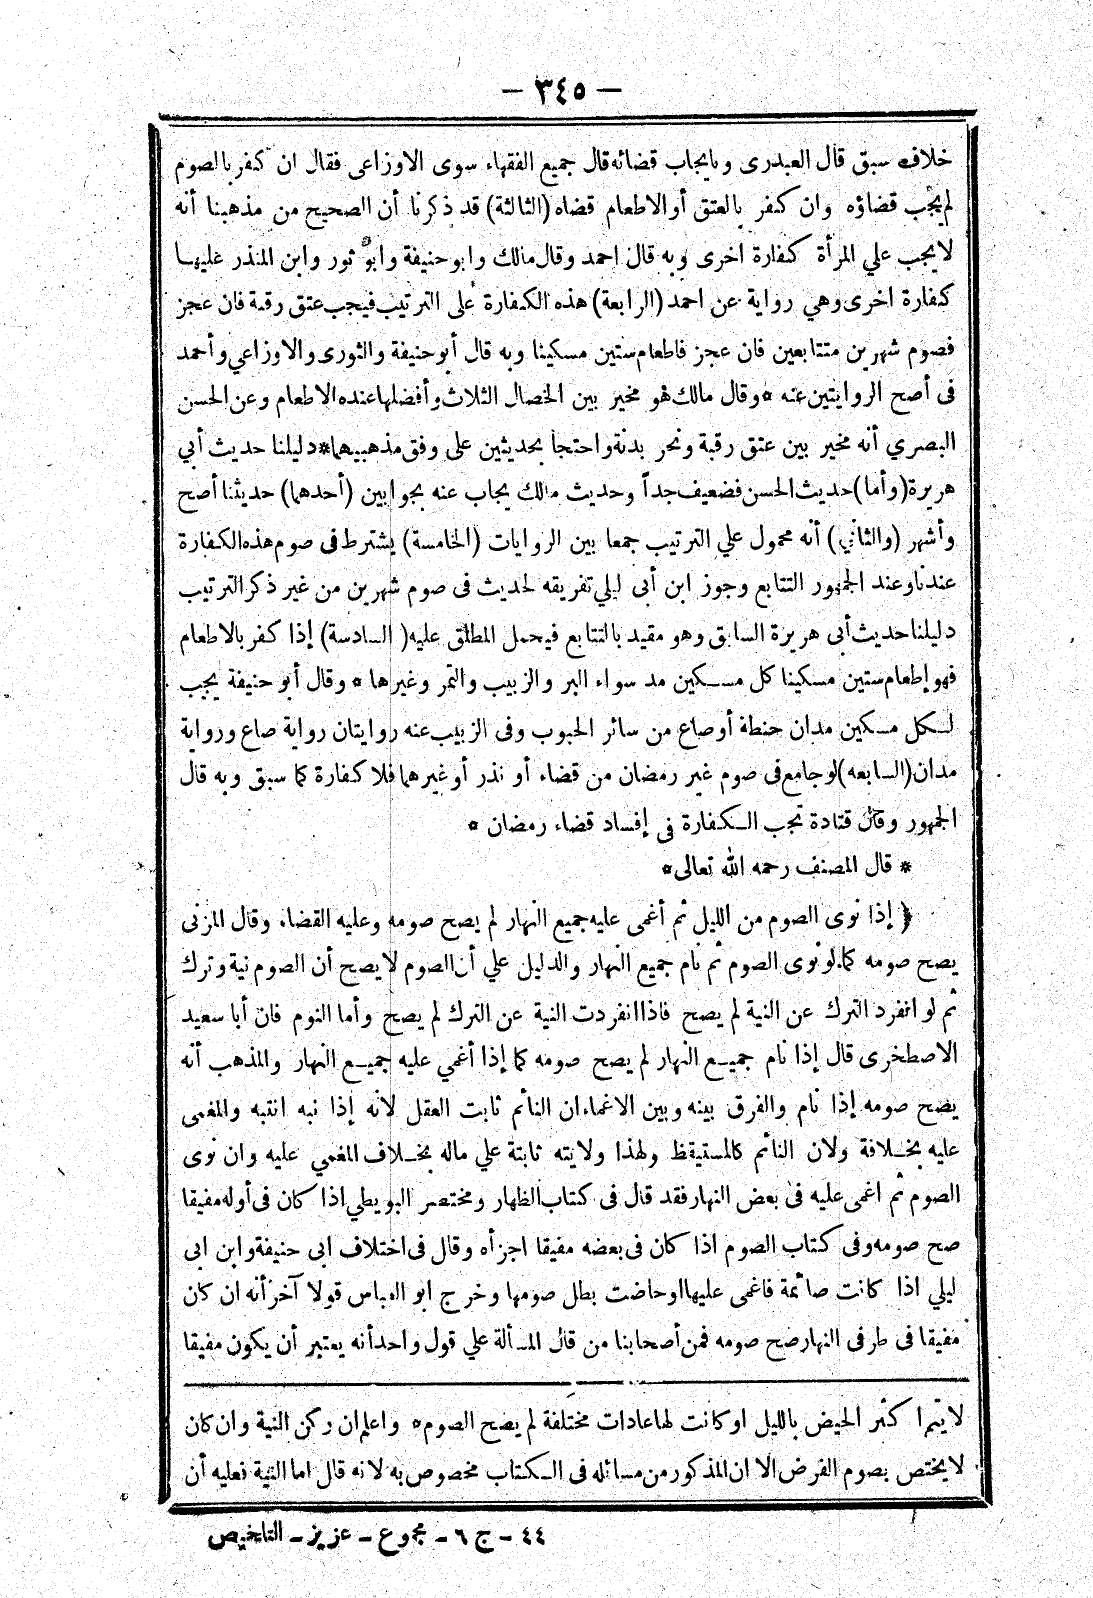 — ٣٤٥ —
خلاف سبق قال العبدرى وبايجاب قضائه قال جميع الفقهاء سوى الاوزاعى فقال ان كفر بالصوم
لم يجب قضاؤه وان كفر بالعتق أو الاطعام قضاه (الثالثة) قد ذكرنا أن الصحيح من مذهبنا أنه
لا يجب علي المرأة كفارة اخرى وبه قال احمد وقال مالك وابو حنيفة وابو ثور وابن المنذر عليها
كفارة اخرى وهي رواية عن احمد (الرابعة) هذه الكفارة على الترتيب فيجب عتق رقبة فان عجز
فصوم شهرين متتابعين فان عجز فاطعام ستين مسكينا وبه قال أبو حنيفة والثورى والاوزاعي وأحمد
فى أصح الروايتين عنه * وقال مالك هو مخير بين الخصال الثلاث وأفضلها عنده الاطعام وعن الحسن
البصري أنه مخير بين عتق رقبة ونحر بدنة واحتجا بحديثين على وفق مذهبيهما * دليلنا حديث أبي
هريرة (وأما) حديث الحسن فضعيف جداً وحديث مالك يجاب عنه بجوابين (أحدهما) حديثنا أصح
وأشهر (والثاني) أنه محمول علي الترتيب جمعا بين الروايات (الخامسة) يشترط فى صوم هذه الكفارة
عندنا وعند الجمهور التتابع وجوز ابن أبى ليلي تفريقه لحديث فى صوم شهرين من غير ذكر الترتيب
دليلنا حديث أبى هريرة السابق وهو مقيد بالتتابع فيحمل المطلق عليه (السادسة) إذا كفر بالاطعام
فهو إطعام ستين مسكينا كل مسكين مد سواء البر والزبيب والتمر وغيرها * وقال أبو حنيفة يجب
لكل مسكين مدان حنطة أو صاع من سائر الحبوب وفى الزبيب عنه روايتان رواية صاع ورواية
مدان (السابعه) لو جامع فى صوم غير رمضان من قضاء أو نذر أو غيرهما فلا كفارة كما سبق وبه قال
الجمهور وقال قتادة تجب الكفارة فى إفساد قضاء رمضان *
* قال المصنف رحمه الله تعالى *
﴿ إذا نوى الصوم من الليل ثم أغمى عليه جميع النهار لم يصح صومه وعليه القضاء وقال المزنى
يصح صومه كما لو نوى الصوم ثم نام جميع النهار والدليل علي أن الصوم لا يصح أن الصوم نية وترك
ثم لو انفرد الترك عن النية لم يصح فاذا انفردت النية عن الترك لم يصح وأما النوم فان أبا سعيد
الاصطخرى قال إذا نام جميع النهار لم يصح صومه كما إذا أغمي عليه جميع النهار والمذهب أنه
يصح صومه إذا نام والفرق بينه وبين الاغماء ان النائم ثابت العقل لانه إذا نبه انتبه والمغمى
عليه بخلافة ولان النائم كالمستيقظ ولهذا ولايته ثابتة علي ماله بخلاف المغمي عليه وان نوى
الصوم ثم اغمى عليه فى بعض النهار فقد قال فى كتاب الظهار ومختصر البويطي اذا كان فى أوله مفيقا
صح صومه وفى كتاب الصوم اذا كان فى بعضه مفيقا اجزأه وقال فى اختلاف ابى حنيفة وابن ابى
ليلي اذا كانت صائمة فاغمى عليها او حاضت بطل صومها وخرج ابو العباس قولا آخر أنه ان كان
مفيقا فى طرفى النهار صح صومه فمن أصحابنا من قال المسألة علي قول واحد أنه يعتبر أن يكون مفيقا
لا يتم اكثر الحيض بالليل او كانت لها عادات مختلفة لم يصح الصوم * واعلم ان ركن النية وان كان
لا يختص بصوم الفرض الا ان المذكور من مسائله فى الكتاب مخصوص به لانه قال اما النية فعليه أن
٤٤ - ج ٦ - مجموع - عزيز - التلخيص